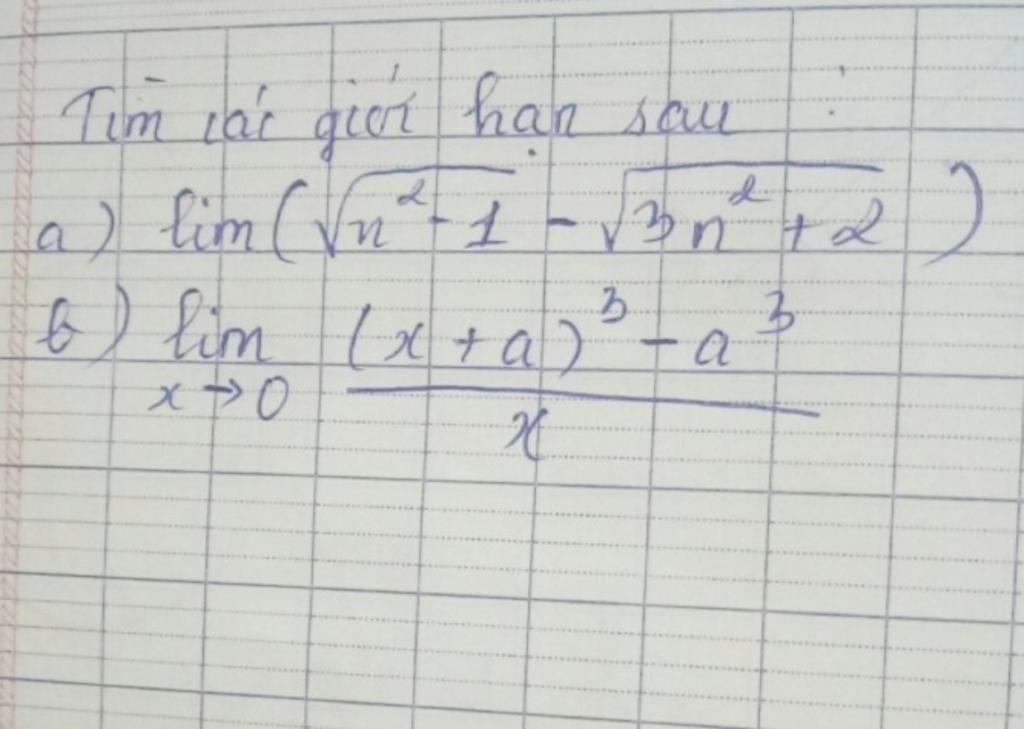 Tìm các giới hạn sau :
a) lim(√(n² - 1) - √(3n² + 2))
b) lim x→0 ((x + a)³ - a³)/x